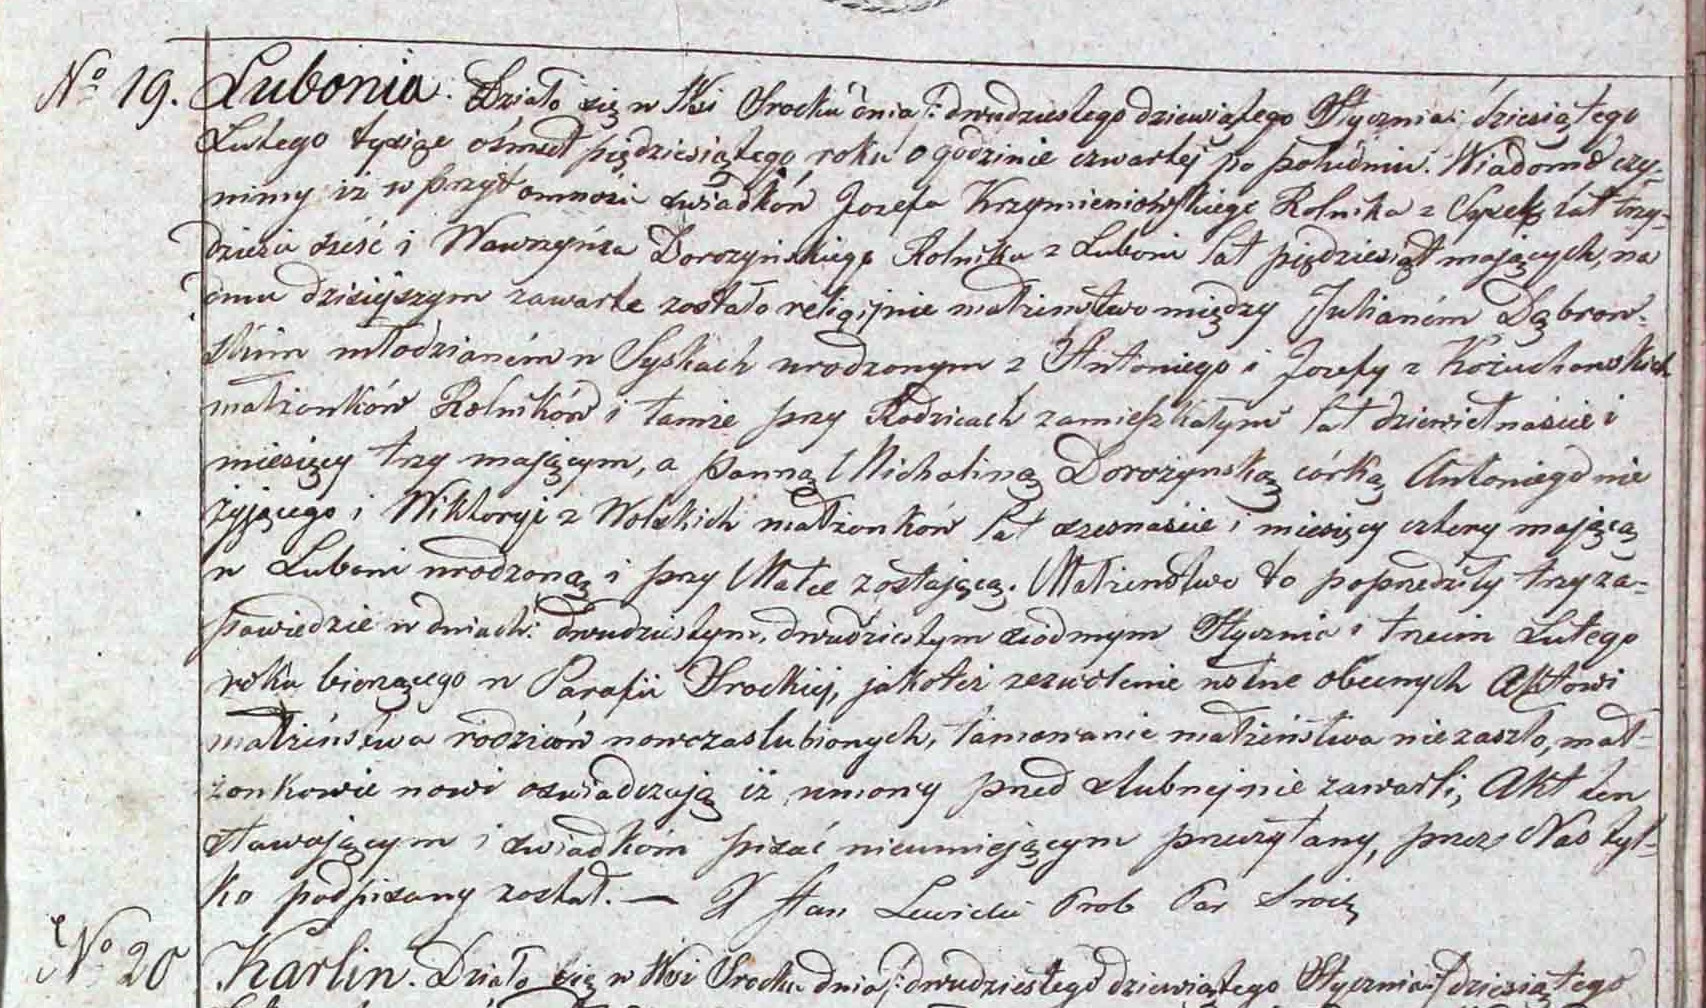 No 19. Lubonia. Działo się w Wsi Srocku dnia /: dwudziestego dziewiątego Stycznia :/ dziesiątego
Lutego tysiąc ośmset piędziesiątego roku o godzinie czwartej po południu. Wiadomo czy-
nimy iż w przytomnosci swiadków Jozefa Krzymieniowskiego Rolnika z lat trzy-
dziesci sześć i Wawrzyńca Dorozynskiego Rolnika z Luboni lat pięździesiąt mających, na
dniu dzisiejszym zawarte zostało religijnie małzenstwo między Julianem Dąbrow-
skim młodzianem w Syskach urodzonym z Antoniego i Jozefy z Kożuchowskich
małzonków Rolników i tamże przy Rodzicach zamieszkałym lat dziewietnascie i
miesięcy trzy mającym, a panną Michaliną Dorozynską córką Antoniego nie
żyjącego i Wiktoryi z Wolskich małzonków lat szesnascie i miesięcy cztery mającą
w Luboni urodzoną i przy Matce zostającą. Małzenstwo to poprzedziły trzy za-
powiedzie w dniach: dwudziestym, dwudziestym siódmym Stycznia i trzecim Lutego
roku bieżącego w Parafii Srockiej, jakoteż zezwolenie ustne obecnych Aktowi
małżeństwa rodziców nowozaslubionych, tamowanie małżeństwa nie zaszło, mał-
żonkowie nowi oswiadczają iż umowy przed slubnej nie zawarli, Akt ten
stawającym i swiadkom pisać nieumiejącym przeczytany, przez Nas tyl-
ko podpisany został. — X Stan Lewicki Prob Par Srock
No 20 Karlin. Działo się w Wsi Srocku dnia /: dwudziestego dziewiątego Stycznia :/ dziesiątego